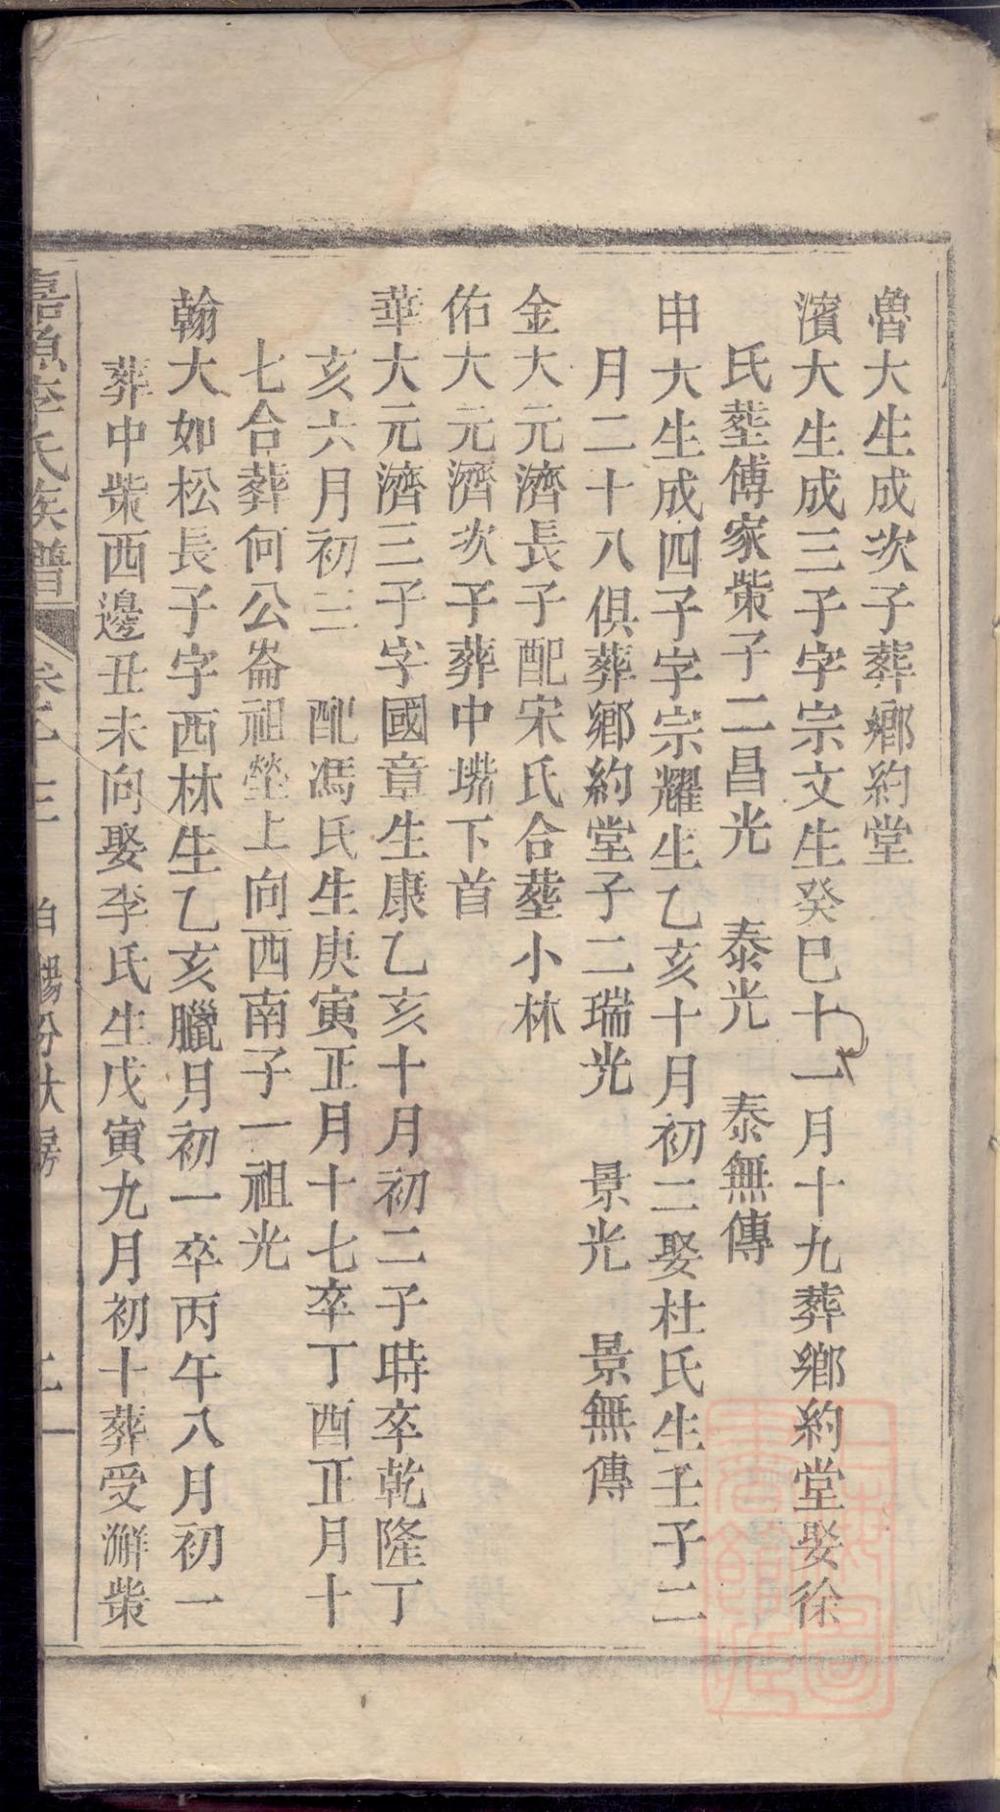 魯大生成次子葬鄉約堂
濱大生成三子字宗文生癸巳十一月十九葬鄉約堂娶徐
氏塟傅家柴子二昌光 泰光 泰無傳
申大生成四子字宗耀生乙亥十月初二娶杜氏生壬子二
月二十八俱葬鄉約堂子二瑞光 景光 景無傳
金大元濟長子配宋氏合塟小林
佑大元濟次子葬中㘅下首
華大元濟三子字國章生康乙亥十月初二子時卒乾隆丁
亥六月初三 配馮氏生庚寅正月十七卒丁酉正月十
七合葬何公崙祖塋上向西南子一祖光
翰大如松長子字西林生乙亥臘月初一卒丙午八月初一
葬中柴西邊丑未向娶李氏生戊寅九月初十葬受澥柴
嘉魚李氏族譜 卷之十三 白楊分大房